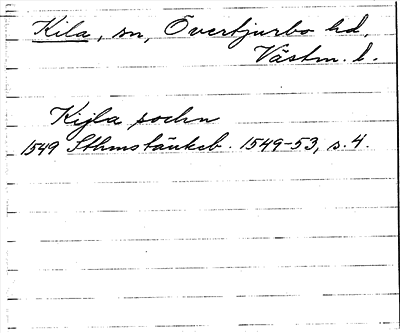 Kila, sn, Övertjurbo hd,
Västm. l.
Kijla sochn
1549 Sthms tänkeb. 1549-53, s. 4.